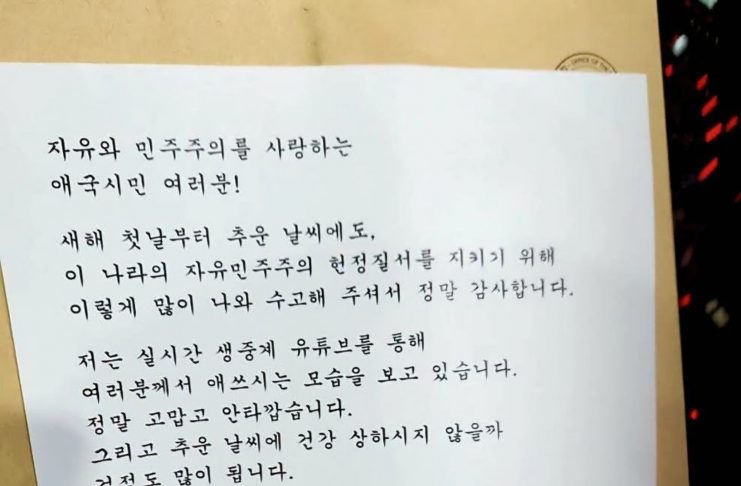 OFFICE OF THE
자유와 민주주의를 사랑하는
애국시민 여러분!
새해 첫날부터 추운 날씨에도,
이 나라의 자유민주주의 헌정질서를 지키기 위해
이렇게 많이 나와 수고해 주셔서 정말 감사합니다.
저는 실시간 생중계 유튜브를 통해
여러분께서 애쓰시는 모습을 보고 있습니다.
정말 고맙고 안타깝습니다.
그리고 추운 날씨에 건강 상하시지 않을까
걱정도 많이 됩니다.